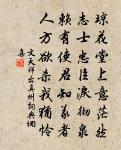 琼花堂上意茫然
志士忠臣泪彻泉
赖有使君知义者
人方欲杀我犹怜
文天祥出真州词典网